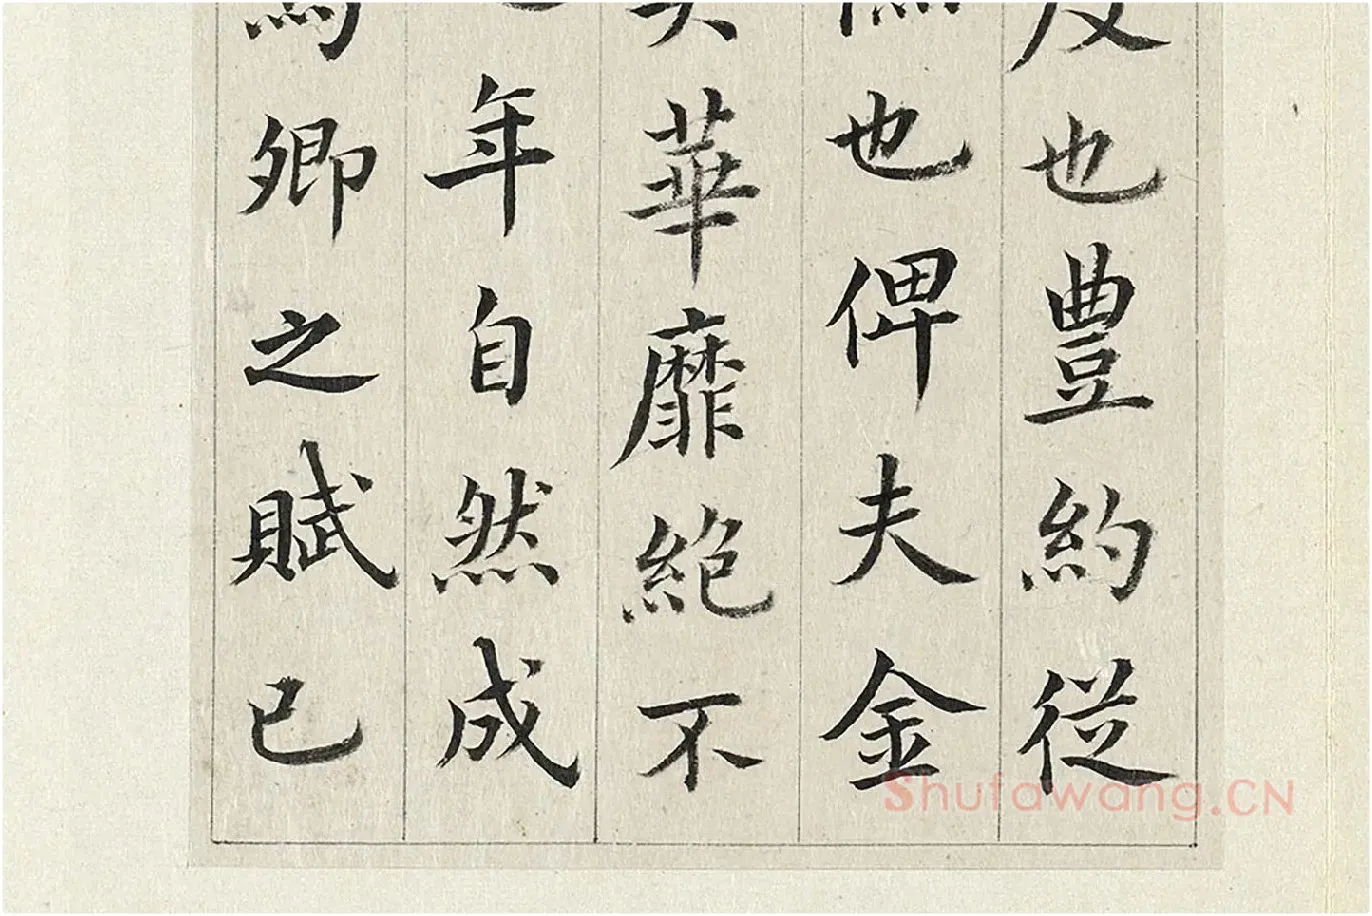 也豊約從
也俾夫金
華靡絶不
年自然成
卿之賦已
Shufawang.CN